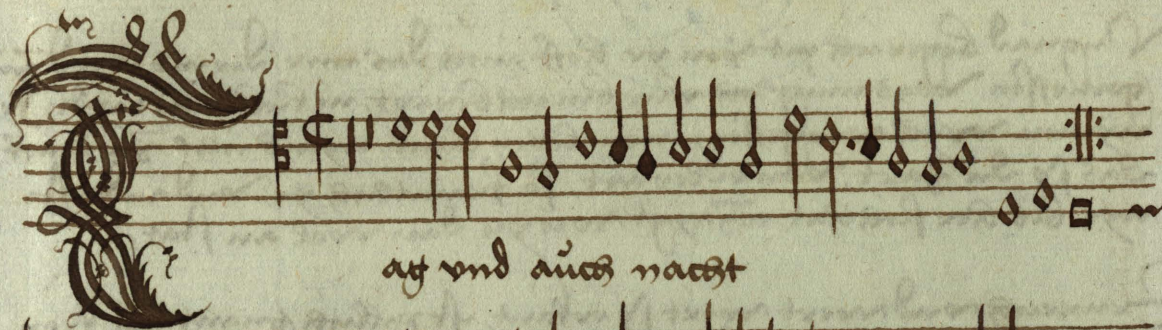 Tag vnd aůch nacht